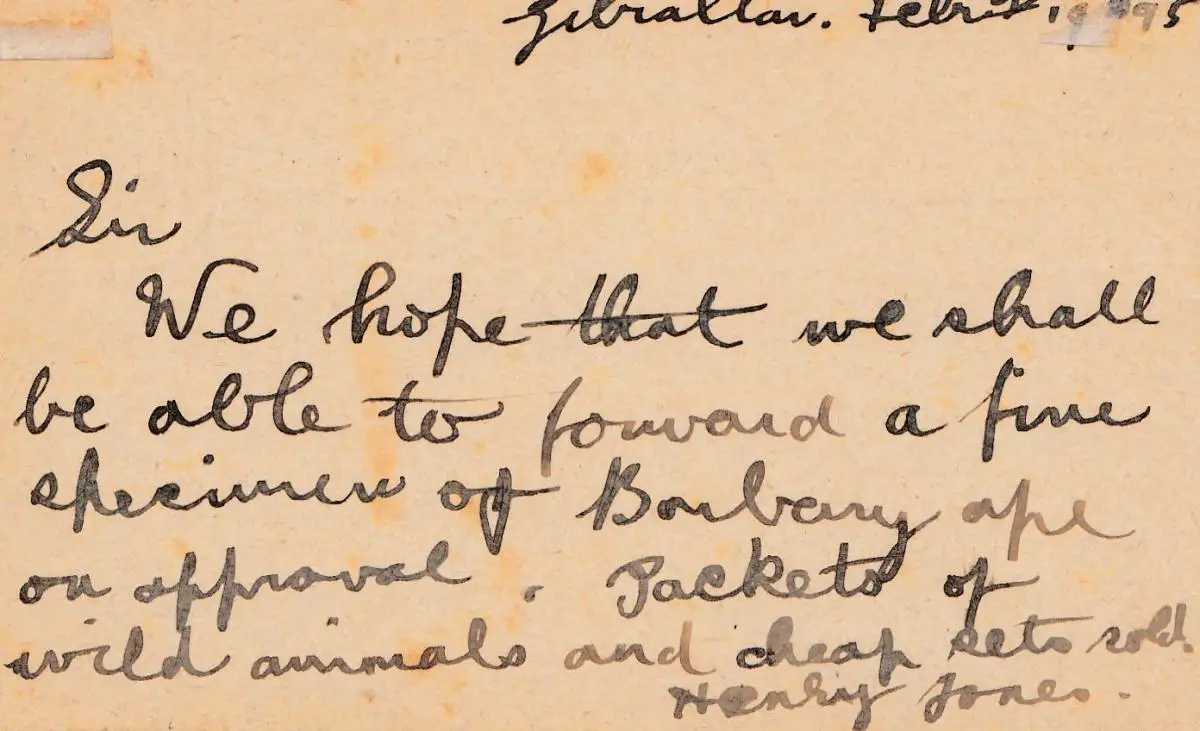 Gibraltar. Febr
Sir
We hope that we shall
be able to forward a fine
specimen of Barbary ape
on approval. Packets of
wild animals and cheap sets sold.
Henry Jones.